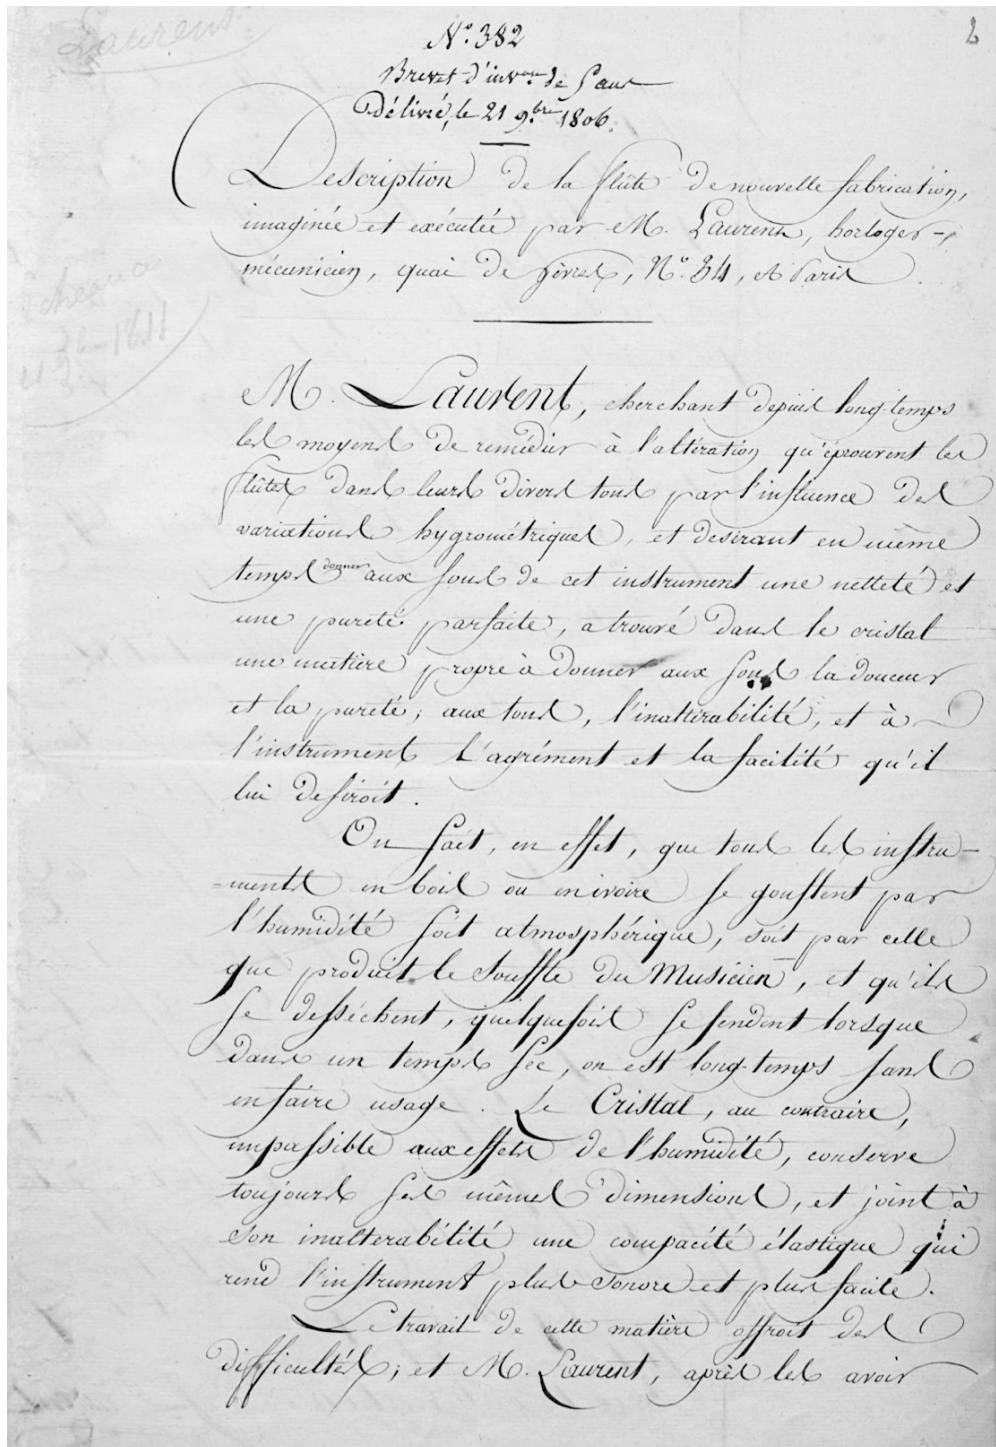 Laurent
2
N.º 382
Brevet d'inv.on de 5 ans
Délivré, le 21 9.bre 1806.
Description de la flûte de nouvelle fabrication,
imaginée et exécutée par M. Laurent, horloger-
mécanicien, quai de Gêvres, N.º 34, à Paris
M. Laurent, cherchant depuis long-temps
les moyens de remédier à l'altération qu'éprouvent les
flûtes dans leurs divers tons par l'influence des
variations hygrométriques, et desirant en même
temps donner aux sons de cet instrument une netteté et
une pureté parfaite, a trouvé dans le cristal
une matière propre à donner aux sons la douceur
et la pureté; aux tons, l'inaltérabilité, et à
l'instrument l'agrément et la facilité qu'il
lui desiroit.
On sait, en effet, que tous les instru-
=ments en bois ou en ivoire se gonflent par
l'humidité soit atmosphérique, soit par celle
que produit le souffle du Musicien, et qu'ils
se dessèchent, quelquefois se fendent lorsque
dans un temps sec, on est long-temps sans
en faire usage. Le Cristal, au contraire,
impassible aux effets de l'humidité, conserve
toujours ses mêmes dimensions, et joint à
son inaltérabilité une compacité élastique qui
rend l'instrument plus sonore et plus facile.
Le travail de cette matière offroit des
difficultés; et M. Laurent, après les avoir